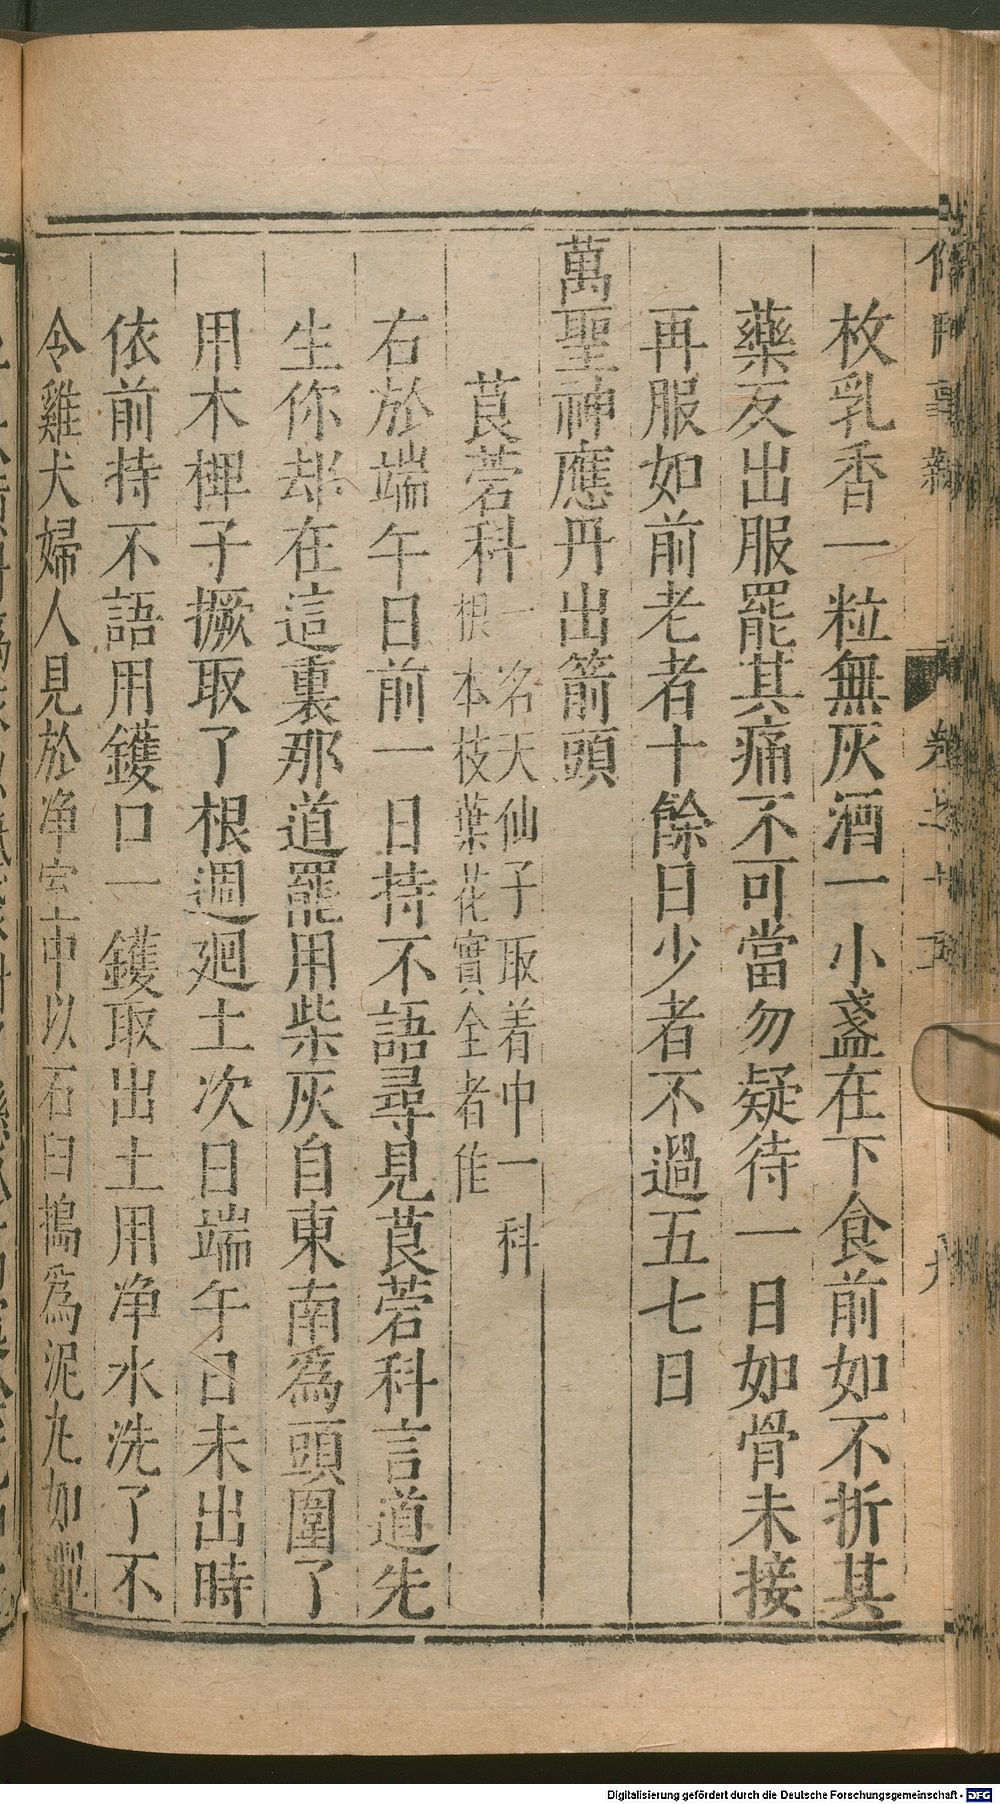 枚乳香一粒無灰酒一小盞在下食前如不折其
藥友出服罷其痛不可當勿疑待一日如骨未接
再服如前老者十餘日少者不過五七日
萬聖神應丹出箭頭
莨菪科一名天仙子取着中一科
根本枝葉花實全者佳
右於端午日前一日持不語尋見莨菪科言道先
生你却在這裏那道罷用柴灰自東南為頭圍了
用木椑子撅取了根週廻土次日端午日未出時
依前持不語用钁口一钁取出土用净水洗了不
令雞犬婦人見於净室中以石臼搗為泥丸如彈
卷之十五
九
Digitalisierung gefördert durch die Deutsche Forschungsgemeinschaft - DFG